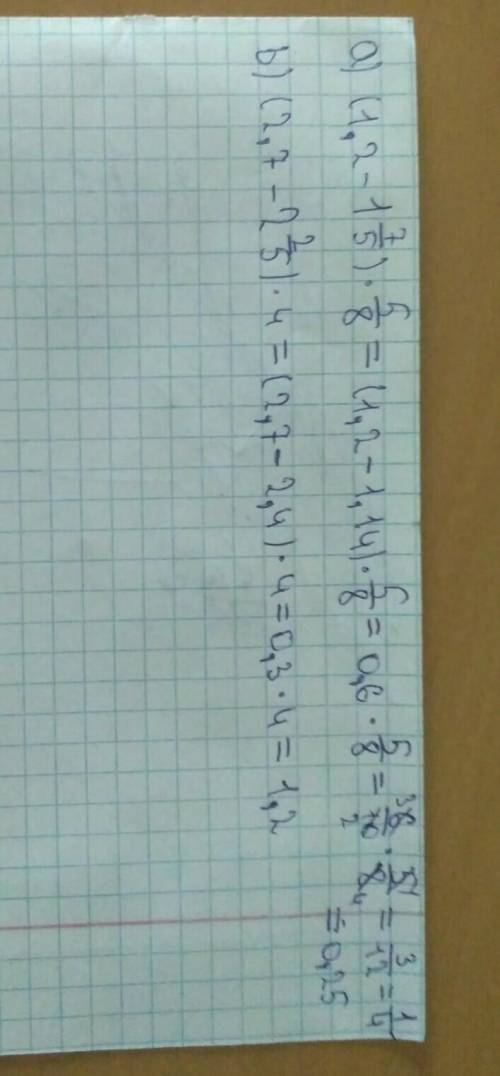 a) (1,2 - 1 7/5) · 5/8 = (1,2 - 1,14) · 5/8 = 0,6 · 5/8 = 6/10 · 5/8 = 3/12 = 1/4
= 0,25
b) (2,7 - 2 2/5) · 4 = (2,7 - 2,4) · 4 = 0,3 · 4 = 1,2